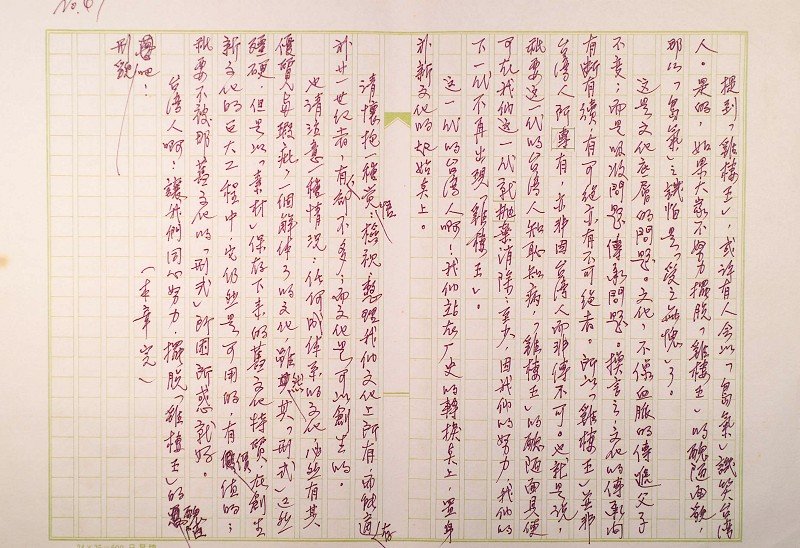 No. 67
提到「雞棲王」，或許有人会以「島氣」譏笑台湾
人。是的，如果大家不努力擺脫「雞棲王」的醜陋面貌，
那么「島氣」之譏怕是「受之無愧」了。
這是文化底層的問題。文化，不像血脈的傳遞父子
不变；而是吸收問題、傳承問題。換言之，文化的傳承間
有斷有續，有可從亦有不可從者。所以「雞棲王」並非
台湾人所專有，亦非因台湾人而非傳不可。也就是說，
祇要這一代的台湾人知恥知病，「雞棲王」的醜陋面具便
可在我们這一代就拋棄消除；至少，因我们的努力，我们的
下一代不再出現「雞棲王」。
這一代的台湾人啊！我们站在厂史的轉換点上，置身
於新文化的起始点上。
請懷抱一種覺悟：檢視、整理我们文化上所有，而能適存
於廿一世纪者，有，但不多；而文化是可以創生的。
也請注意一種情况：任何成体系的文化，必然有其
優質與瑕疵，一個解体了的文化，雖然其「形式」已然
殭硬，但是以「素材」保存下来的舊文化特質，在創生
新文化的巨大工程中它仍然是可用的，有價值的；
祇要不被那舊文化的「形式」所困所惑就好。
台湾人啊！讓我們同心努力，擺脫「雞棲王」的醜陋
形貌吧！
（本章完）